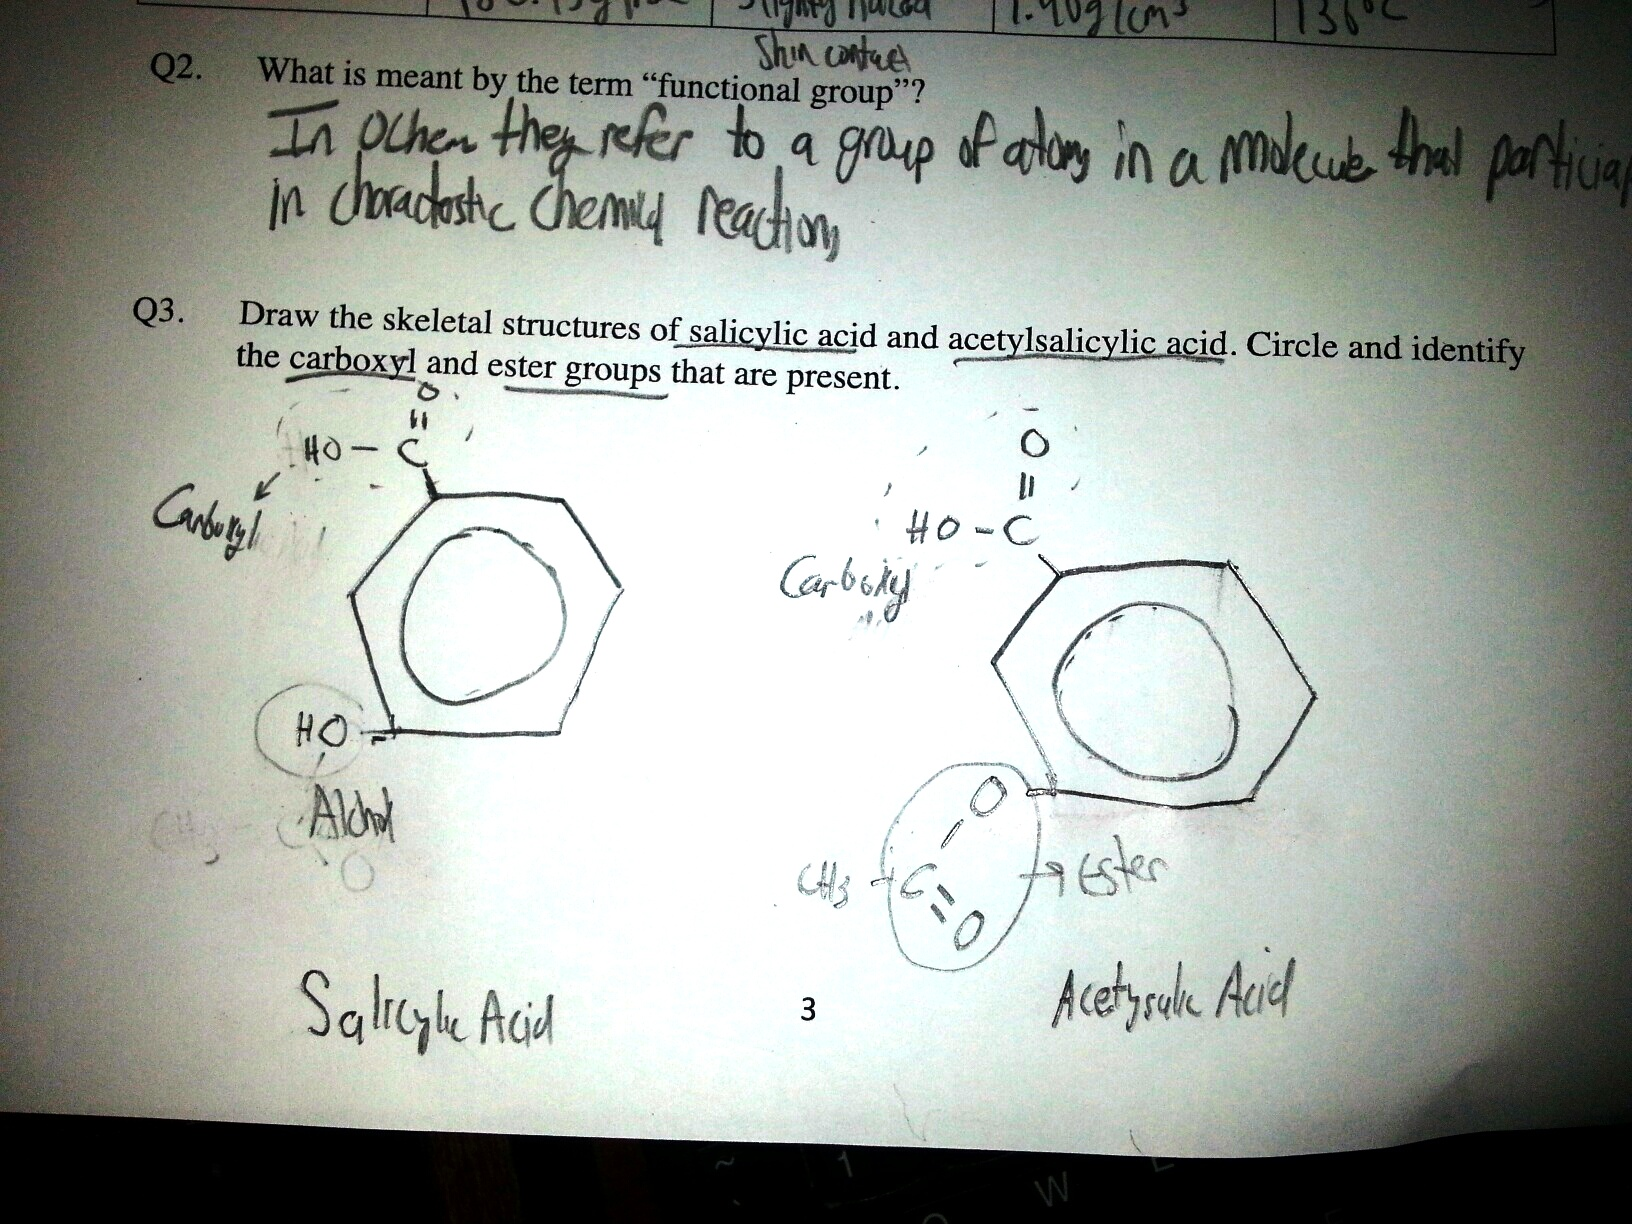 1.40g/cm³ 136°C
Skin contact
Q2. What is meant by the term “functional group”?
In Ochem they refer to a group of atoms in a molecule that particiap
in charactostic chemical reactions
Q3. Draw the skeletal structures of salicylic acid and acetylsalicylic acid. Circle and identify
the carboxyl and ester groups that are present.
O
HO – C
Carboxyl
HO
Alchol
CH3 C
O
Salicylic Acid
O
HO – C
Carboxyl
O
CH3 – C
O
Ester
Acetysalic Acid
3
~ 1
W